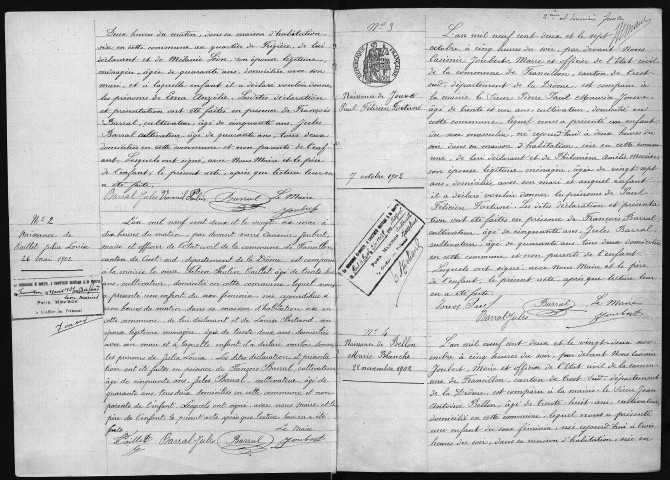 Deux heures du matin, dans sa maison d'habitation
sise en cette commune au quartier de de lui
déclarant et de Mélanie son épouse légitime,
ménagère, âgée de quarante ans, domiciliée avec son
mari, et à laquelle enfant il a déclaré vouloir donner
les prénoms de Angèle. Lesdites déclaration
et présentation ont été faites en présence de François
Barral, cultivateur, âgé de cinquante ans, Jules
Barral cultivateur, âgé de quarante ans, tous deux
domiciliés en cette commune et non parents de l'enfant.
Lesquels ont signé, avec Nous Maire et le père
de l'enfant, le présent acte, après que lecture leur en
a été faite.
Barral Jules Barral Le Maire
Joubert
N° 2
Naissance de
Caillet Julia Louise
26 mai 1902
L'an mil neuf cent deux et le vingt six mai à
dix heures du matin, par devant nous Casimir Joubert,
maire et officier de l'état civil de la commune de Francillon,
canton de Crest sud, département de la Drôme, est comparu
à la mairie le sieur Paulin Caillet âgé de trente huit
ans, cultivateur, domicilié en cette commune, lequel nous
a présenté une enfant du sexe féminin, née aujourd'hui à
heures du matin dans sa maison d'habitation sise en
cette commune, de lui déclarant et de Louise son
épouse légitime ménagère, âgée de trente deux ans, domiciliée
avec son mari et à laquelle enfant il a déclaré vouloir donner
les prénoms de Julia Louise. Les dites déclaration et présentation
ont été faites en présence de François Barral, cultivateur
âgé de cinquante ans, Jules Barral, cultivateur, âgé de
quarante ans, tous deux domiciliés en cette commune et non
parents de l'enfant. Lesquels ont signé avec nous maire et le
père de l'enfant, le présent acte après que lecture leur en a été
faite
Caillet Barral Jules Barral Le Maire
Joubert
2ème et dernière feuille
N° 3
Naissance de
Paul Félicien Fortuné
7 octobre 1902
L'an mil neuf cent deux et le sept
octobre à cinq heures du soir, par devant Nous
Casimir Joubert, Maire et officier de l'Etat civil
de la commune de Francillon, canton de Crest
sud, département de la Drôme, est comparu à
la mairie, le Sieur Pierre Paul Maurice
âgé de trente et une ans, cultivateur, domicilié en
cette commune, lequel nous a présenté un enfant
du sexe masculin, né aujourd'hui à deux heures du
soir dans sa maison d'habitation, sise en cette commune,
de lui déclarant et de Philomène Amélie
son épouse légitime ménagère, âgée de vingt sept
ans, domiciliée avec son mari et auquel enfant
il a déclaré vouloir donner les prénoms de Paul
Félicien Fortuné. Les dites déclaration et présentation
ont été faites en présence de François Barral
cultivateur, âgé de cinquante ans, Jules Barral,
cultivateur, âgé de quarante ans, tous deux domiciliés
en cette commune et non parents de l'enfant.
Lesquels ont signé, avec Nous Maire et le père
de l'enfant, le présent acte, après que lecture leur en
a été faite.
Barral Le Maire
Barral Jules Joubert
N° 4
Naissance de Bellon
Marie Blanche
22 novembre 1902
L'an mil neuf cent deux et le vingt deux novembre
à cinq heures du soir, par devant Nous Casimir
Joubert, Maire et officier de l'Etat civil de la commune
de Francillon, canton de Crest sud, département
de la Drôme, est comparu à la mairie le Sieur Jean
Antoine Bellon, âgé de trente huit ans, cultivateur
domicilié en cette commune, lequel nous a présenté
une enfant du sexe féminin, née aujourd'hui à trois
heures du soir, dans sa maison d'habitation, sise en